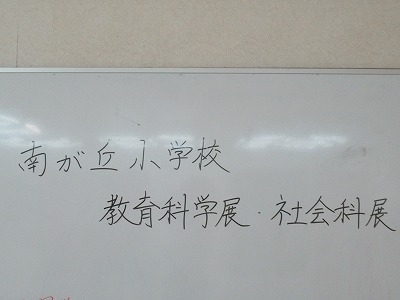 南が丘小学校
教育科学展・社会科展